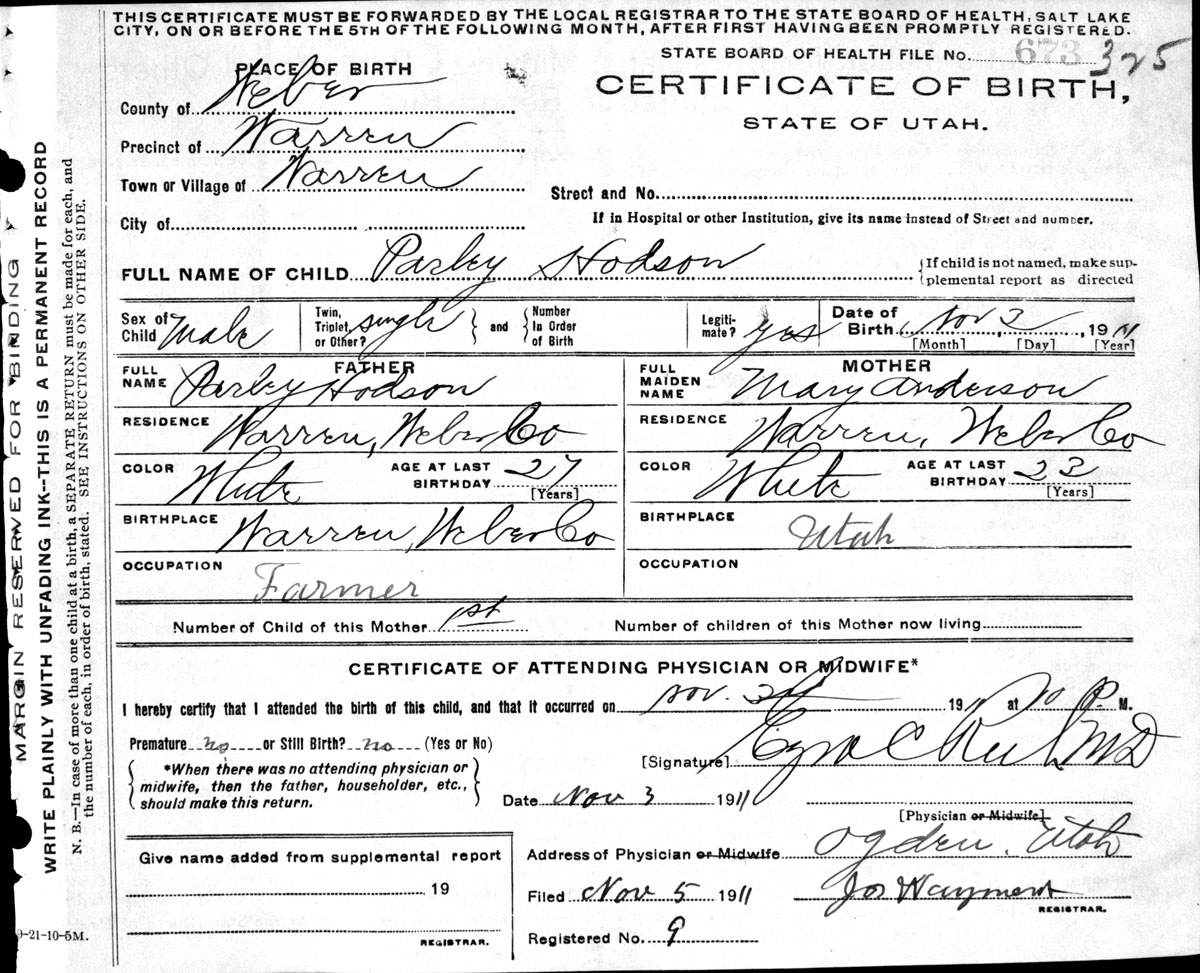 THIS CERTIFICATE MUST BE FORWARDED BY THE LOCAL REGISTRAR TO THE STATE BOARD OF HEALTH, SALT LAKE
CITY, ON OR BEFORE THE 5TH OF THE FOLLOWING MONTH, AFTER FIRST HAVING BEEN PROMPTLY REGISTERED.
STATE BOARD OF HEALTH FILE No. 673 325
PLACE OF BIRTH
CERTIFICATE OF BIRTH,
STATE OF UTAH.
County of Weber
Precinct of Warren
Town or Village of Warren
Street and No.
City of
If in Hospital or other Institution, give its name instead of Street and number.
FULL NAME OF CHILD Parley Hodson
{If child is not named, make sup-
plemental report as directed
Sex of Child Male
Twin, Triplet, or Other? single } and { Number In Order of Birth
Legiti-mate? yes
Date of Birth Nov 2, 1911
[Month] [Day] [Year]
FATHER
FULL NAME Parley Hodson
MOTHER
FULL MAIDEN NAME Mary Anderson
RESIDENCE Warren, Weber Co
RESIDENCE Warren, Weber Co
COLOR White AGE AT LAST BIRTHDAY 27 [Years]
COLOR White AGE AT LAST BIRTHDAY 23 [Years]
BIRTHPLACE Warren, Weber Co
BIRTHPLACE Utah
OCCUPATION Farmer
OCCUPATION
Number of Child of this Mother 1st
Number of children of this Mother now living
CERTIFICATE OF ATTENDING PHYSICIAN OR MIDWIFE*
I hereby certify that I attended the birth of this child, and that it occurred on Nov. 19 at P. M.
Premature no or Still Birth? no (Yes or No)
{ *When there was no attending physician or
midwife, then the father, householder, etc.,
should make this return. }
[Signature] Ezra C Rich MD
Date Nov 3 1911
[Physician or Midwife]
Give name added from supplemental report
19
REGISTRAR.
Address of Physician or Midwife Ogden, Utah
Filed Nov 5 1911 Jos Wayment
REGISTRAR.
Registered No. 9
9-21-10-5M.
MARGIN RESERVED FOR BINDING
WRITE PLAINLY WITH UNFADING INK--THIS IS A PERMANENT RECORD
N. B.—In case of more than one child at a birth, a SEPARATE RETURN must be made for each, and
the number of each, in order of birth, stated. SEE INSTRUCTIONS ON OTHER SIDE.